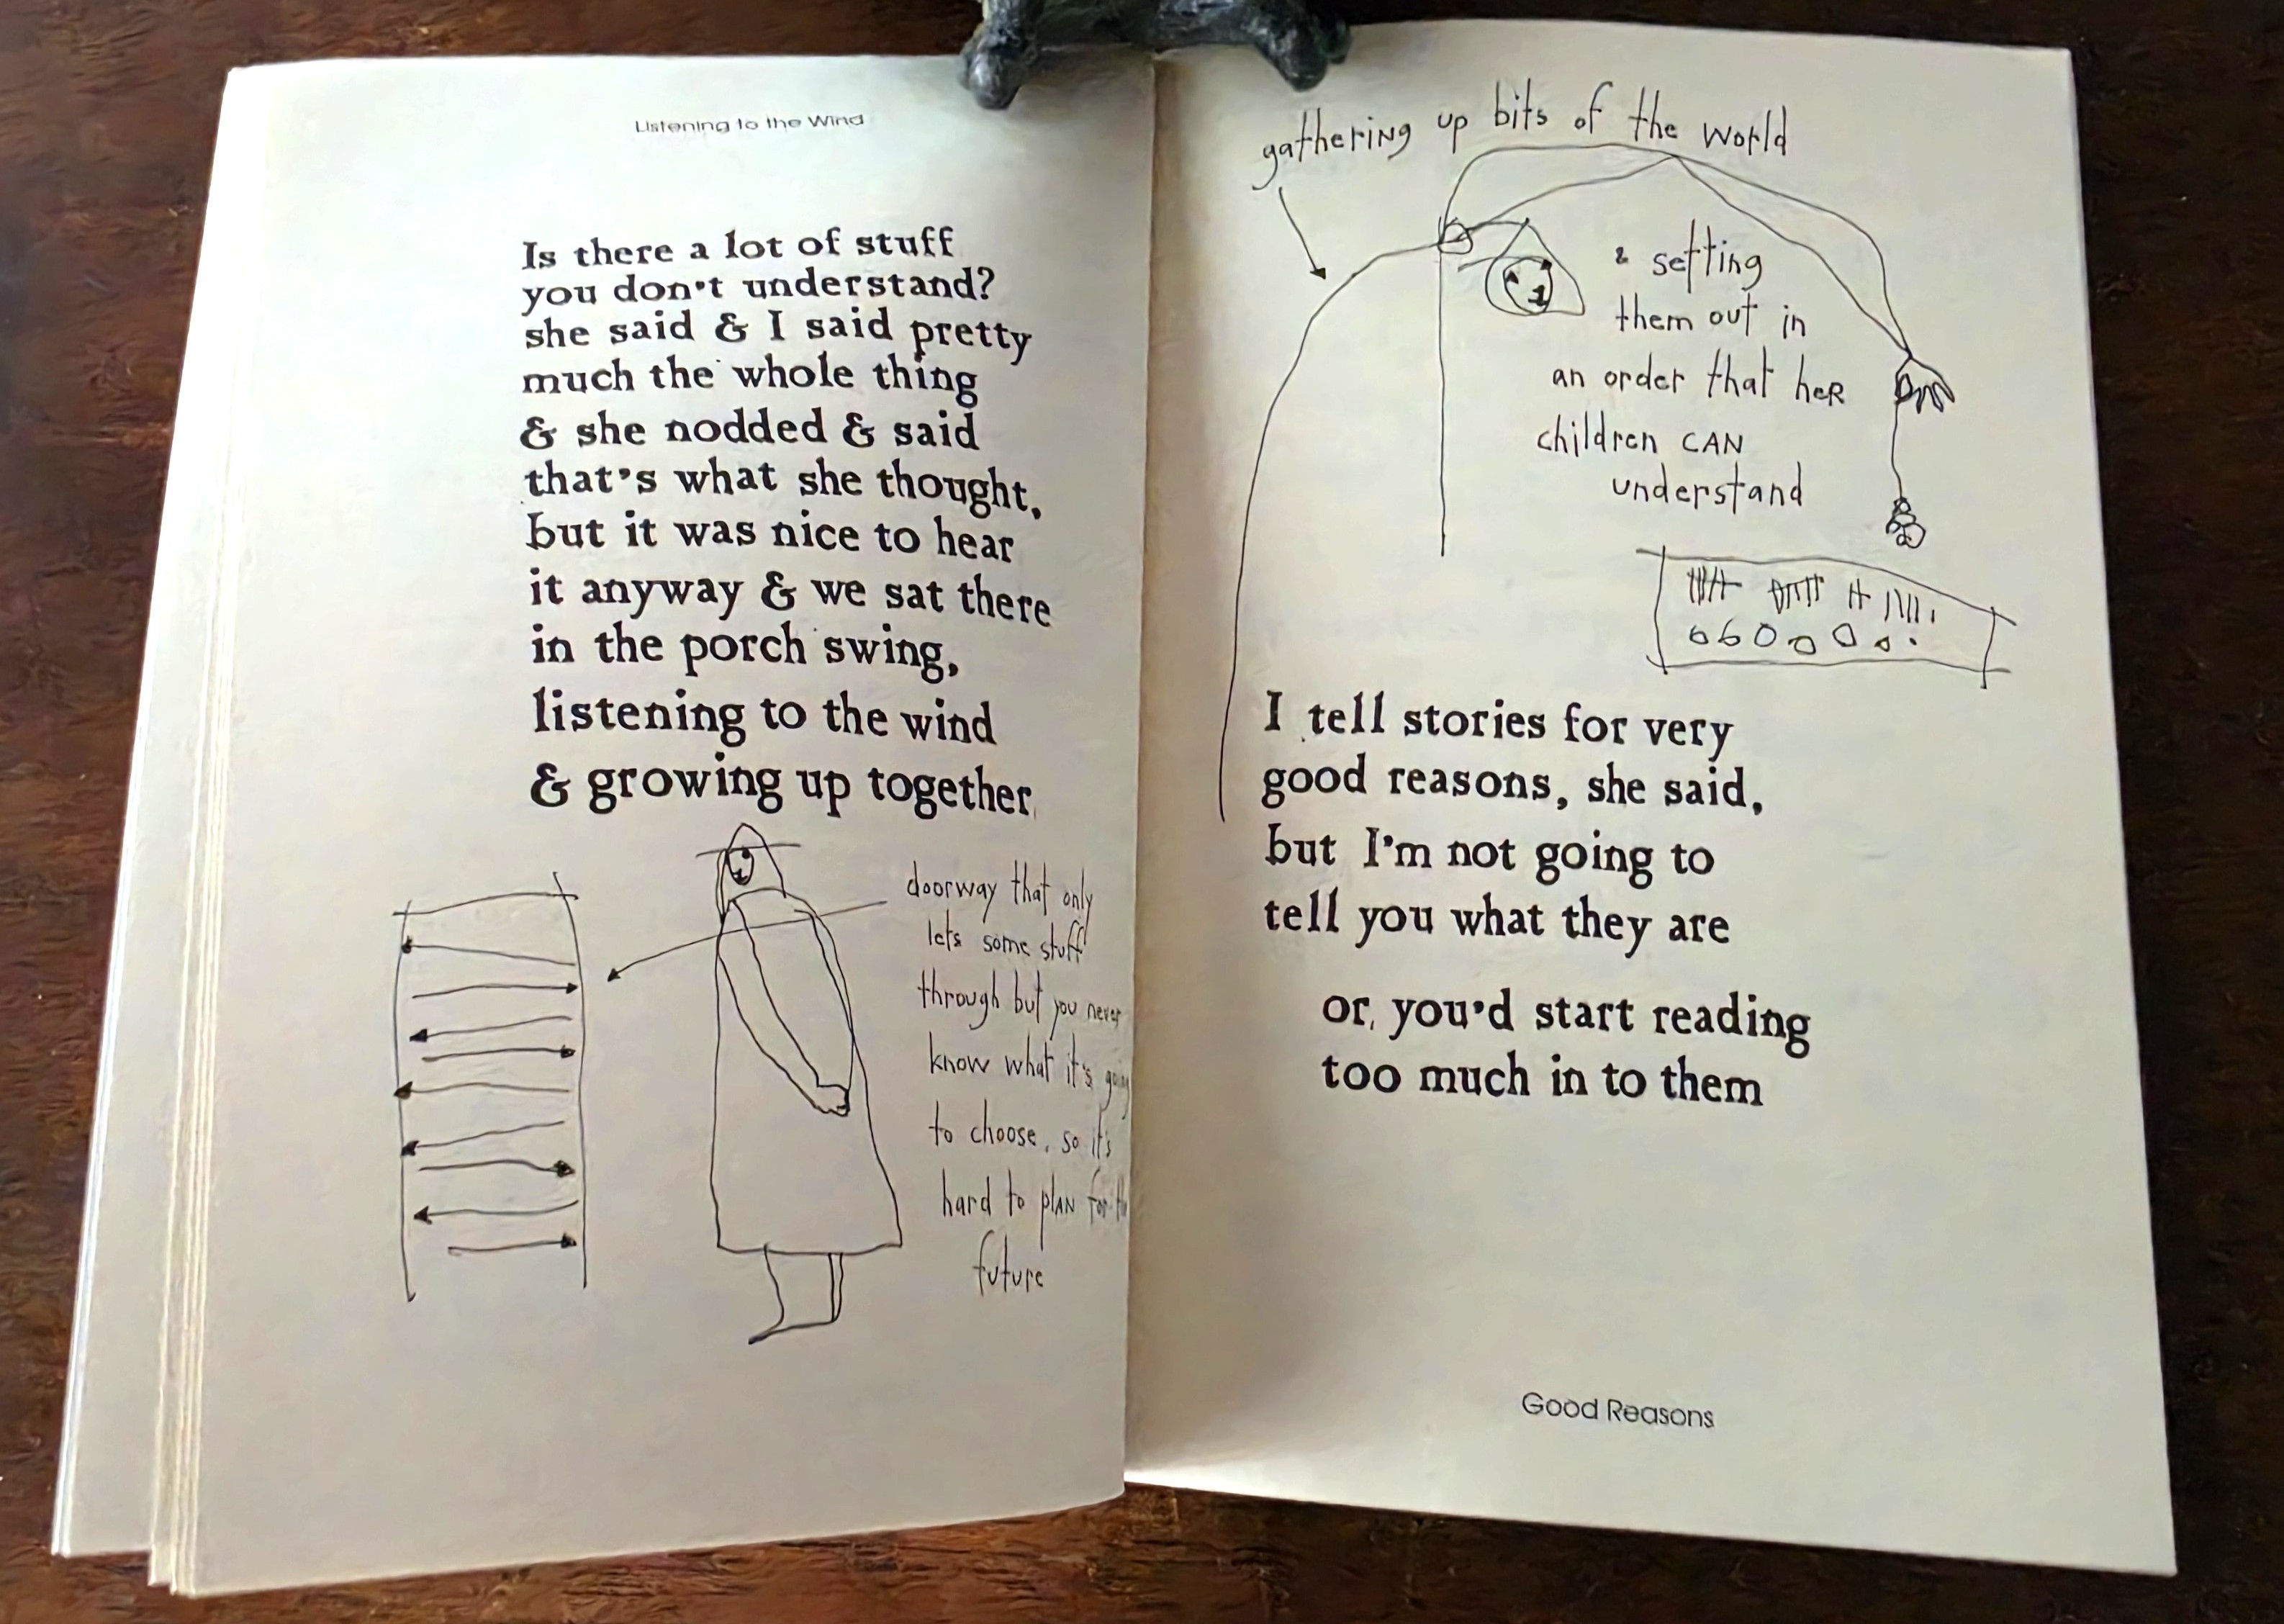 Listening to the Wind
Is there a lot of stuff
you don't understand?
she said & I said pretty
much the whole thing
& she nodded & said
that's what she thought,
but it was nice to hear
it anyway & we sat there
in the porch swing,
listening to the wind
& growing up together.
doorway that only
lets some stuff
through but you never
know what it's going
to choose, so it's
hard to plan for the
future
gathering up bits of the world
& setting
them out in
an order that her
children can
understand
I tell stories for very
good reasons, she said,
but I'm not going to
tell you what they are
or, you'd start reading
too much in to them
Good Reasons